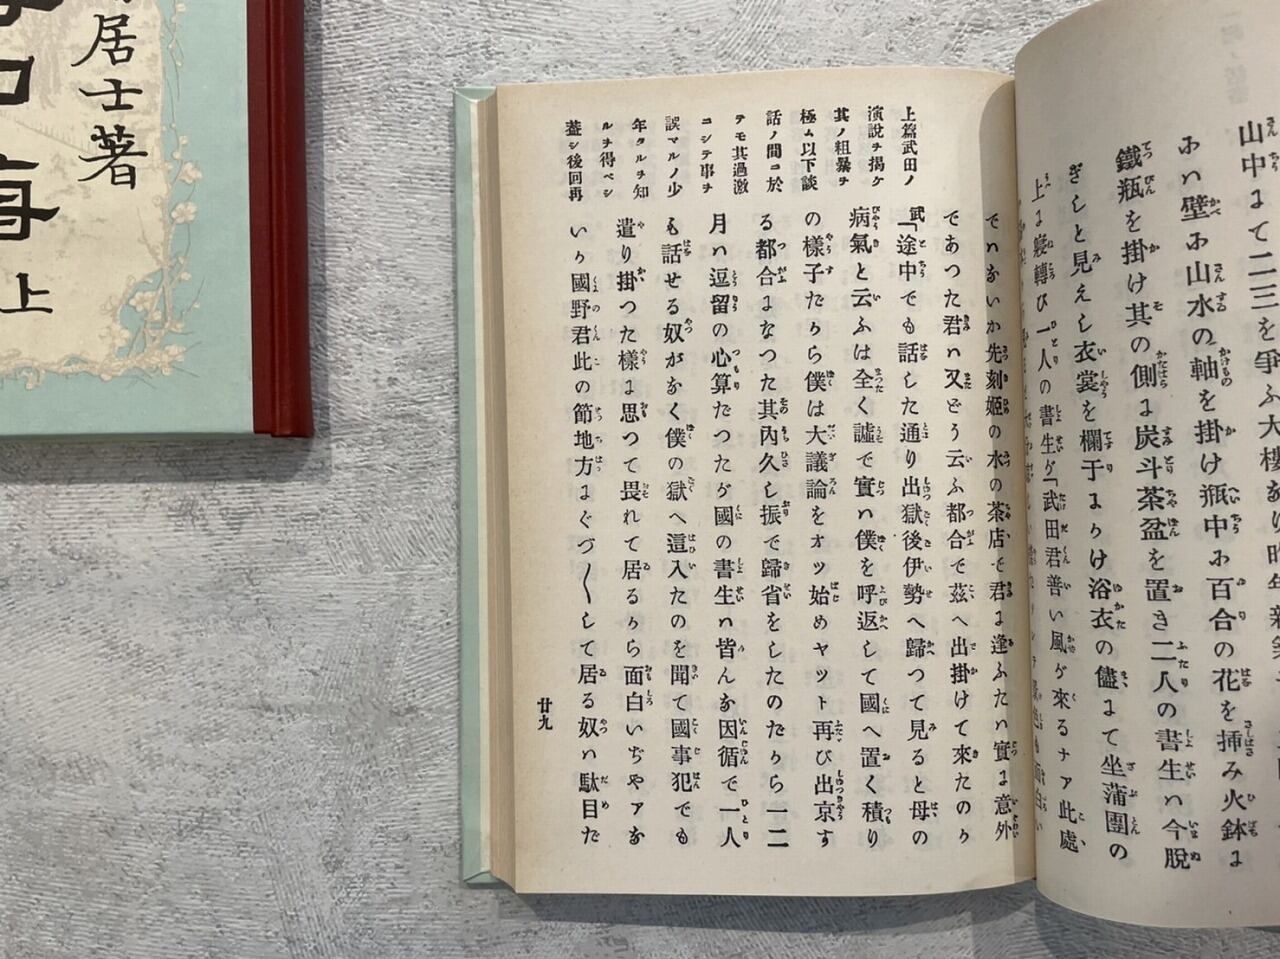 居士著
上
山中まて二三を爭ふ大樓
ホハ壁ホ山水の軸を掛け瓶中ホ百合の花を挿み火鉢ま
鐵瓶を掛け其の側ま炭斗茶盆を置き二人の書生ハ今脱
ぎしと見えし衣裳を欄干まかけ浴衣の儘まて坐蒲團の
上ま寢轉び一人の書生ガ「武田君善い風ガ來るナア此處
でハないか先刻姫の水の茶店で君ま逢ふたハ實ま意外
であつた君ハ又どう云ふ都合で茲へ出掛けて來たのか
武「途中でも話した通り出獄後伊勢へ歸つて見ると母の
病氣と云ふは全く譃で實ハ僕を呼返して國へ置く積り
の樣子だから僕は大議論をオツ始めヤツト再び出京す
る都合まなつた其內久し振で歸省をしたのだから一二
月ハ逗留の心算だつたが國の書生ハ皆んな因循で一人
も話せる奴がなく僕の獄へ這入たのを聞て國事犯でも
遣り掛つた樣ま思つて畏れて居るから面白いぢやアな
いか國野君此の節地方まぐづ〳〵して居る奴ハ駄目だ
上篇武田ノ
演說ヲ揭ケ
其ノ粗暴ヲ
極ム以下談
話ノ間ニ於
テモ其過激
ニシテ事ヲ
誤マルノ少
年タルヲ知
ルヲ得ベシ
蓋シ後回再
廿九